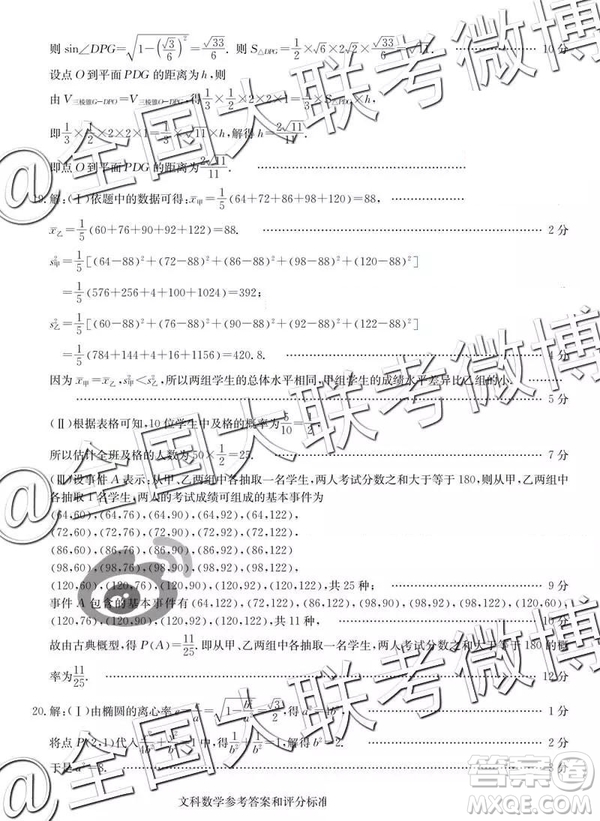 则 sin∠DPG=√(1-(√3/6)²)=√33/6. 则 S△DPG=1/2×√6×2√2×√33/6=√11. ………… 10 分
设点 O 到平面 PDG 的距离为 h,则
由 V三棱锥G-DPO=V三棱锥O-DPG,得 1/3×1/2×2×2×1=1/3×S△PDG×h,
即 1/3×1/2×2×2×1=1/3×√11×h,解得 h=2√11/11.
即点 O 到平面 PDG 的距离为 2√11/11. …………
19.解:(Ⅰ)依题中的数据可得:x̄甲=1/5(64+72+86+98+120)=88,
x̄乙=1/5(60+76+90+92+122)=88. ………… 2 分
s²甲=1/5[(64-88)²+(72-88)²+(86-88)²+(98-88)²+(120-88)²]
=1/5(576+256+4+100+1024)=392;
s²乙=1/5[(60-88)²+(76-88)²+(90-88)²+(92-88)²+(122-88)²]
=1/5(784+144+4+16+1156)=420.8. ………… 4 分
因为 x̄甲=x̄乙,s²甲<s²乙,所以两组学生的总体水平相同,甲组学生的成绩水平差异比乙组的小.
………… 5 分
(Ⅱ)根据表格可知,10 位学生中及格的概率为 5/10=1/2.
所以估计全班及格的人数为 50×1/2=25. ………… 7 分
(Ⅲ)设事件 A 表示:从甲、乙两组中各抽取一名学生,两人考试分数之和大于等于 180,则从甲、乙两组中
各抽取 1 名学生,两人的考试成绩可组成的基本事件为
(64,60),(64,76),(64,90),(64,92),(64,122),
(72,60),(72,76),(72,90),(72,92),(72,122),
(86,60),(86,76),(86,90),(86,92),(86,122)
(98,60),(98,76),(98,90),(98,92),(98,122),
(120,60),(120,76),(120,90),(120,92),(120,122),共 25 种; ………… 9 分
事件 A 包含的基本事件有(64,122),(72,122),(86,122),(98,90),(98,92),(98,122),(120,60),
(120,76),(120,90),(120,92),(120,122),共 11 种, ………… 10 分
故由古典概型,得 P(A)=11/25. 即从甲、乙两组中各抽取一名学生,两人考试分数之和大于等于 180 的概
率为 11/25. ………… 12 分
20.解:(Ⅰ)由椭圆的离心率 ,得 ………… 1 分
将点 P(2,1)代入 中,得 ,解得 b²=2. ………… 2 分
于是 a²=8. ………… 3 分
文科数学参考答案和评分标准
@全国大联考微博
@全国大联考微博
@全国大联考微博
答案圈
MXQE.COM